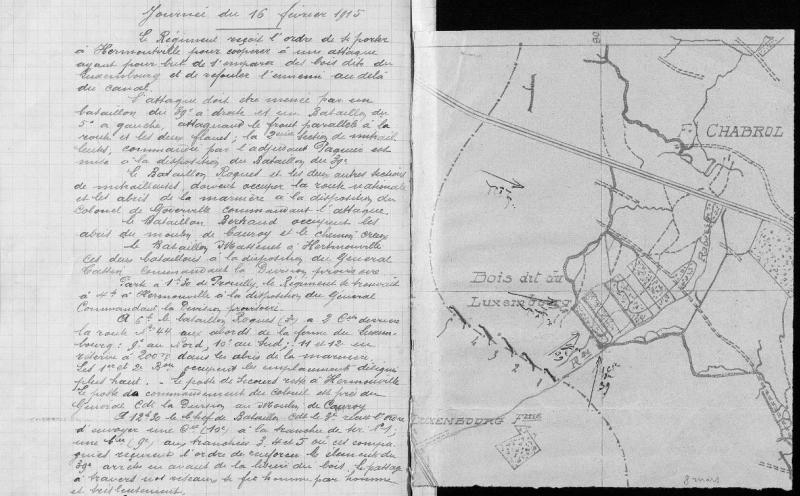 Journée du 16 février 1915
Le Régiment reçoit l'ordre de se porter
à Hermonville pour coopérer à une attaque
ayant pour but de s'emparer des bois dits du
Luxembourg et de refouler l'ennemi au delà
du canal.
L'attaque doit être menée par un
bataillon du 39e à droite et un Bataillon du
5e à gauche, attaquant le front parallèle à la
route et les deux flancs; la 2eme section de mitrail
leuses, commandée par l'adjudant Paquée est
mise à la disposition du Bataillon du 39e
Le Bataillon Roques et les deux autres sections
de mitrailleuses, doivent occuper la route nationale
et les abris de la marnière à la disposition du
Colonel de commandant l'attaque.
Le Bataillon Bertrand occupent les
abris du moulin de Cauroy et le chemin creux
Le Bataillon à Hermonville
Ces deux bataillons à la disposition du Général
commandant la Division provisoire
Parti à 1h30 de Prouilly, le Régiment se trouvait
à 4h à Hermonville à la disposition du Général
Commandant la Division provisoire.
A 6h le bataillon Roques (3e) a 2 Cies derrière
la route No 44 aux abords de la ferme du Luxem-
bourg: 9e au Nord, 10e au Sud; 11 et 12 en
réserve à 200m dans les abris de la marnière.
Les 1er et 2e Bons occupent les emplacements désignés
plus haut. - Le poste de Secours reste à Hermonville
Le poste de commandement du colonel est près du
Général Cdt la Division au Moulin de Cauroy
A 12h20 le Chef de Bataillon Cdt le 3e reçoit l'ordre
d'envoyer une Cie (10e) à la tranchée de tir No 1,
une Cie (9e) aux tranchées 3, 4 et 5 où ces compa-
gnies reçurent l'ordre de renforcer les éléments du
39e arrêtés en avant de la lisière du bois, le passage
à travers nos réseaux se fit homme par homme
et très lentement.
CHABROL
Bois dit du
Luxembourg
5
4
3
2
1
39
LUXENBOURG Fme
8 mars